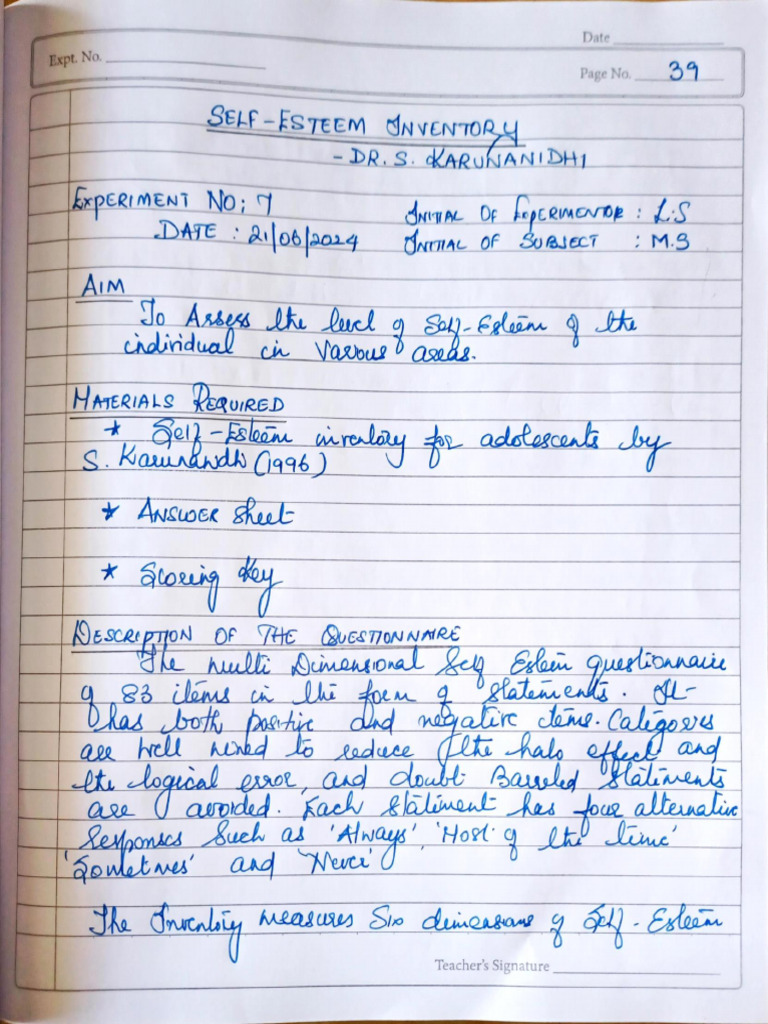 Date
Expt. No.
Page No. 39
SELF-ESTEEM INVENTORY
- DR. S. KARUNANIDHI
EXPERIMENT NO: 7
INITIAL OF EXPERIMENTOR : L.S
DATE : 21/06/2024
INITIAL OF SUBJECT : M.S
AIM
To Assess the level of Self-Esteem of the
individual in various areas.
MATERIALS REQUIRED
* Self-Esteem inventory for adolescents by
S. Karunanidh (1996)
* ANSWER sheet
* Scoring Key
DESCRIPTION OF THE QUESTIONNAIRE
The multi Dimensional Self Esteem questionnaire
of 83 items in the form of statements. It
has both positive and negative items. Categories
are well mixed to reduce the halo effect and
the logical error, and doubt Barreled Statements
are avoided. Each statement has four alternative
responses such as 'Always', 'Most of the time'
'Sometimes' and 'Never'
The Inventory measures Six dimensions of Self-Esteem
Teacher's Signature